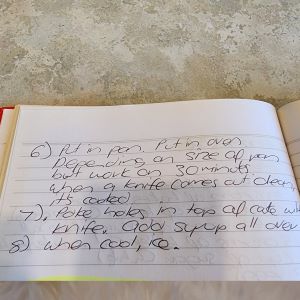 6) Put in pan. Put in oven
Depending on size of pan
but work on 30 minuts.
when a knife comes out clean,
it's cooked
7). Poke holes in top of cake wit
knife. add syrup all over
8) when cool, ice.